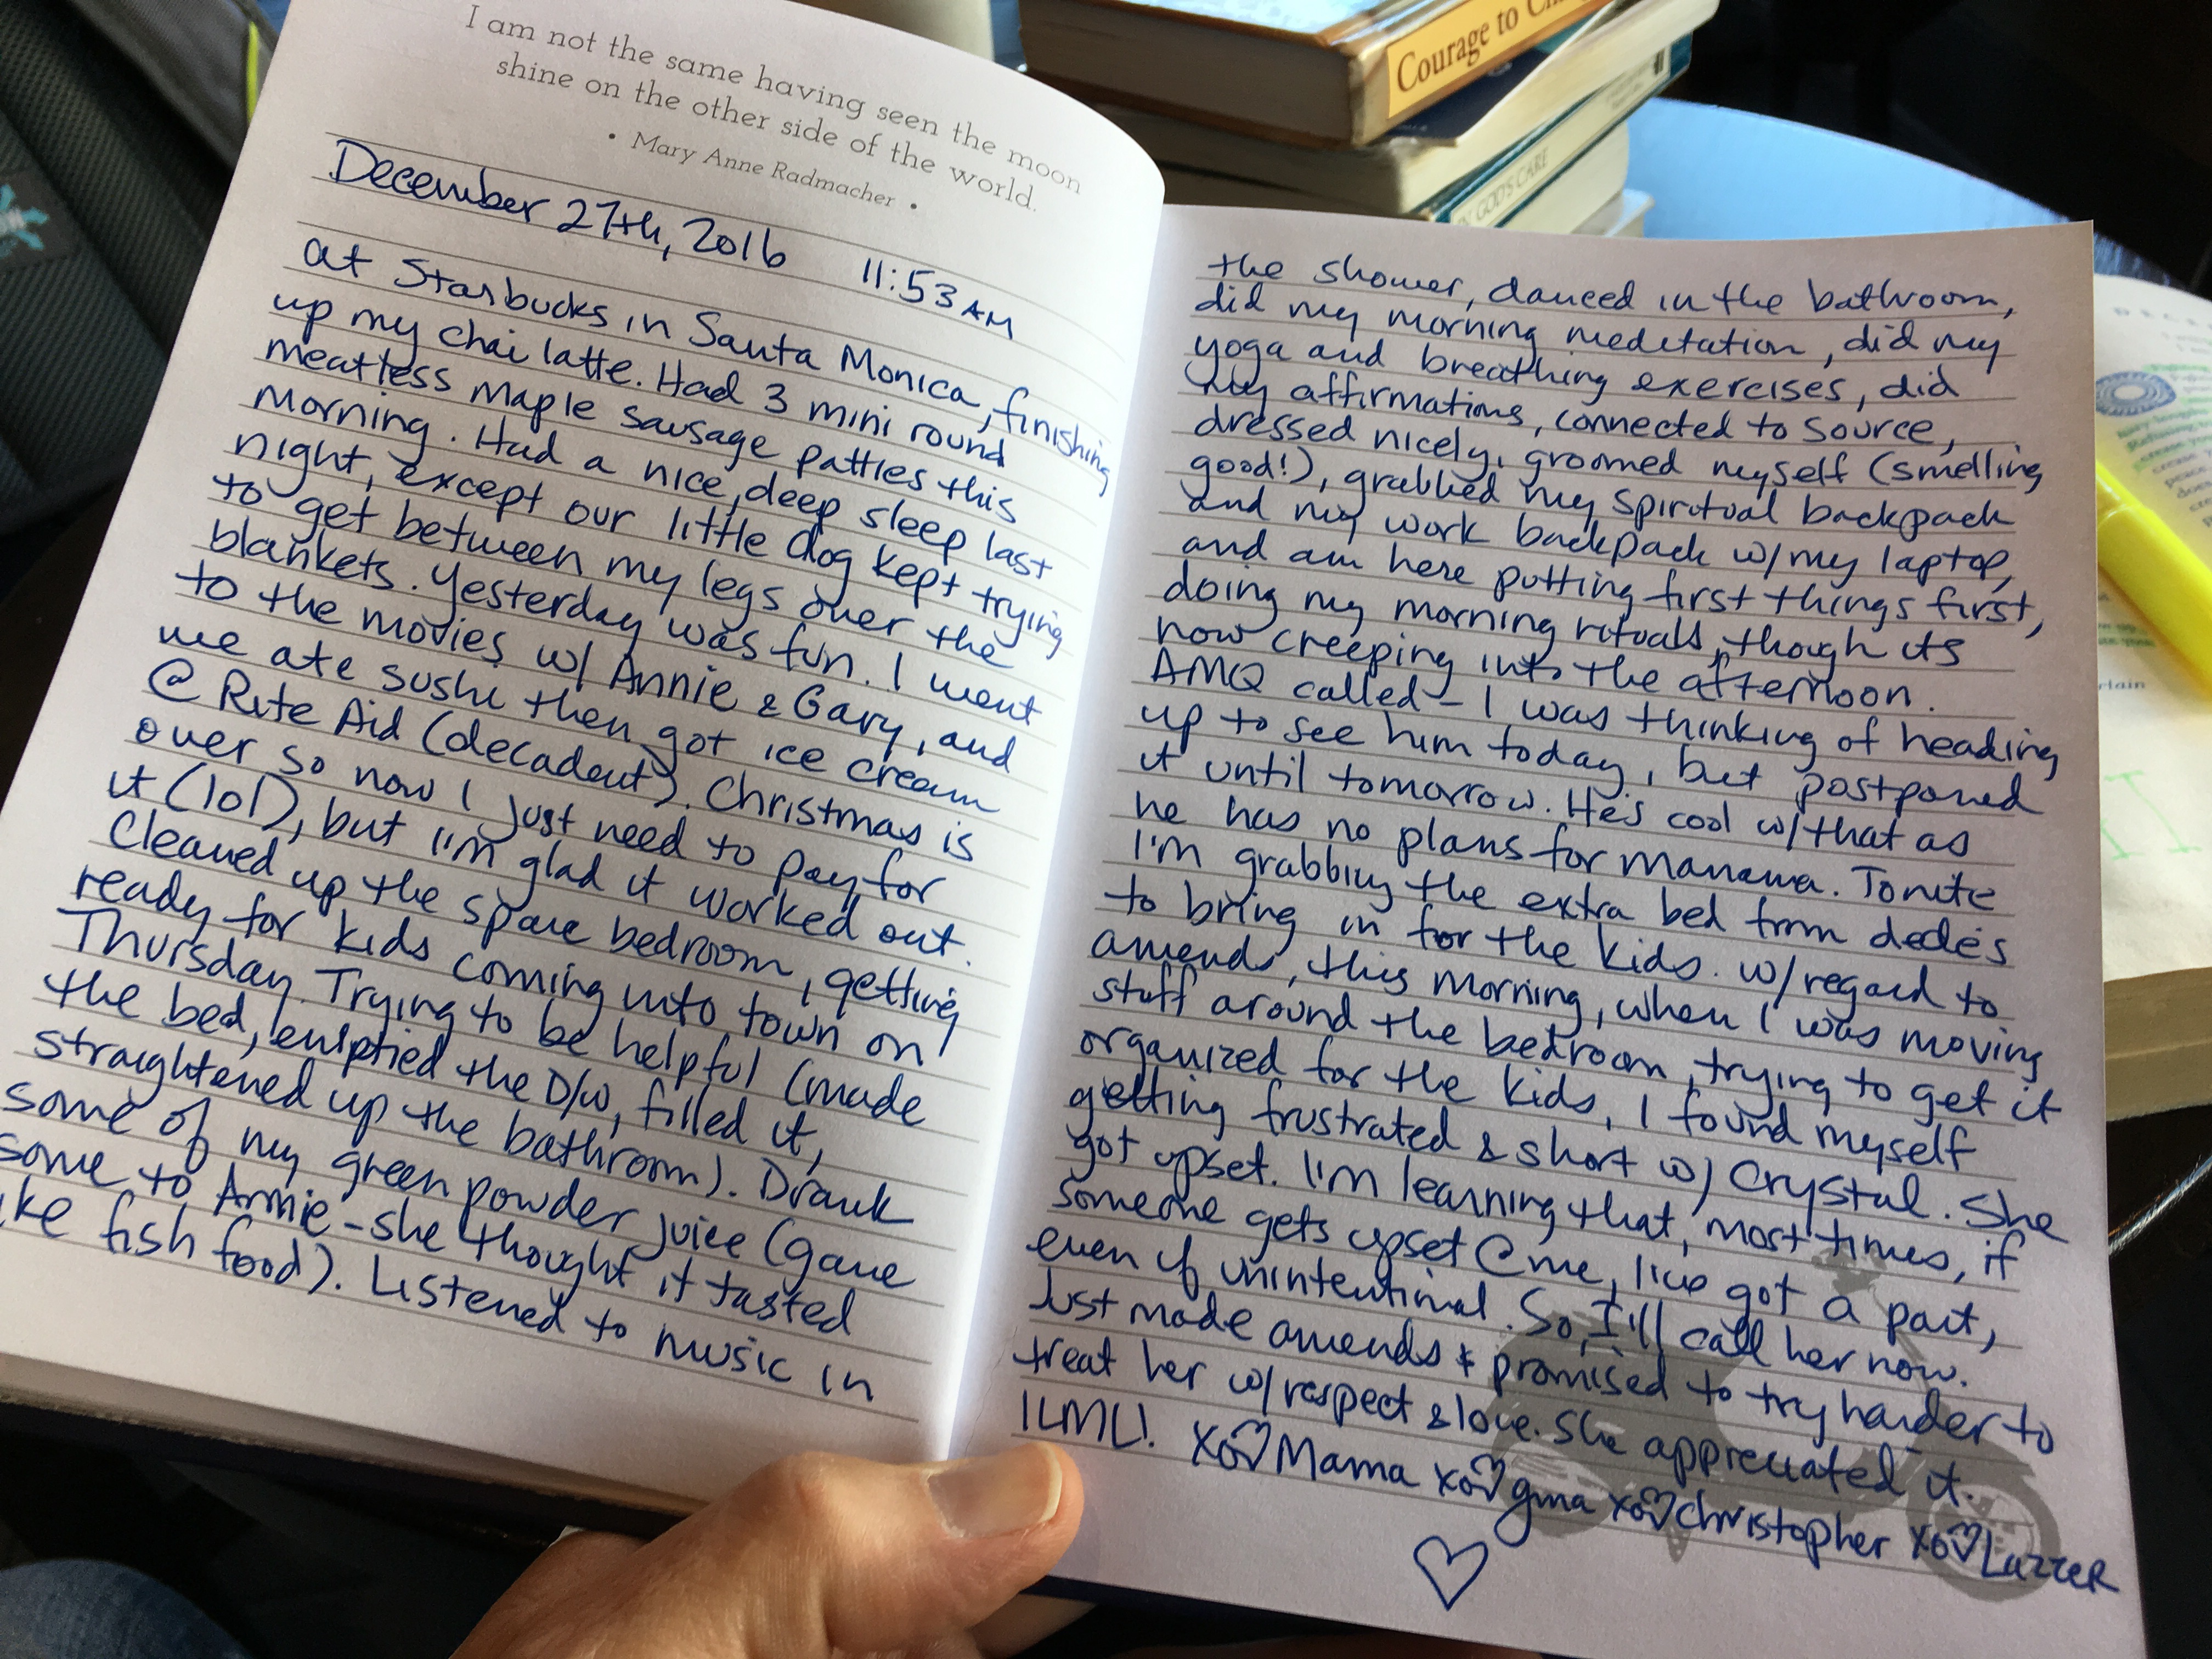 I am not the same having seen the moon
shine on the other side of the world.
• Mary Anne Radmacher •
December 27th, 2016 11:53 AM
at Starbucks in Santa Monica, finishing
up my chai latte. Had 3 mini round
meatless maple sausage patties this
morning. Had a nice, deep sleep last
night, except our little dog kept trying
to get between my legs over the
blankets. Yesterday was fun. I went
to the movies w/ Annie & Gary, and
we ate sushi then got ice cream
@ Rite Aid (decadent). Christmas is
over so now I just need to pay for
it (lol), but I'm glad it worked out.
Cleaned up the spare bedroom, getting
ready for kids coming into town on
Thursday. Trying to be helpful (made
the bed, emptied the D/W, filled it,
straightened up the bathroom). Drank
some of my green powder juice (gave
some to Annie - she thought it tasted
ike fish food). Listened to music in
the shower, danced in the bathroom,
did my morning meditation, did my
yoga and breathing exercises, did
my affirmations, connected to source,
dressed nicely, groomed myself (smelling
good!), grabbed my spiritual backpack
and my work backpack w/my laptop,
and am here putting first things first,
doing my morning rituals, though its
now creeping into the afternoon.
AMQ called - I was thinking of heading
up to see him today, but postponed
it until tomorrow. He's cool w/that as
he has no plans for manana. Tonite
I'm grabbing the extra bed from dede's
to bring in for the kids. w/regard to
amends, this morning, when I was moving
stuff around the bedroom, trying to get it
organized for the kids, I found myself
getting frustrated & short w/ Crystal. She
got upset. I'm learning that, most times, if
someone gets upset @ me, I've got a part,
even if unintentional. So, I'll call her now.
Just made amends & promised to try harder to
treat her w/respect & love. She appreciated it.
ILML! xo♡Mama xo♡gma xo♡Christopher xo♡Luzzer
♡
Courage to
GOD'S CARE
rtain